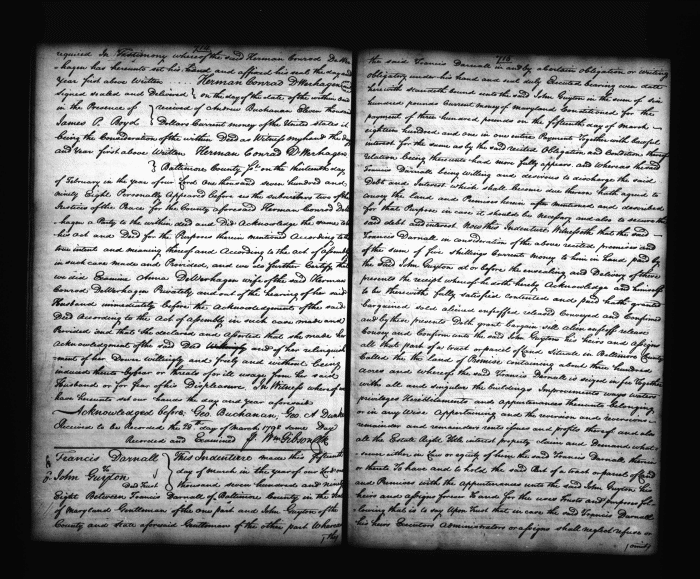 required In Testimony whereof the said Herman Conrod DeWer
hagen has hereunto set his hand and affixed his seal the day and
year first above Written .... Herman Conrod DWerhagen
Signed sealed and Delivered } on the day of the date of the within and
in the Presence of } received of Andrew Buchanan Eleven hundred
James P. Boyd } Dollars Current money of the United States
being the Consideration of the within Deed as Witness my hand the day
and year first above Written Herman Conrod DWerhagen
} Baltimore County Sc. on the thirteenth day
of February in the year of our Lord One thousand seven hundred and
ninety Eight Personally appeared before us the subscribers two of the
Justices of the Peace for the County aforesaid Herman Conrod DeWer
hagen a Party to the within deed and Did Acknowledge the same as
his Act and Deed for the Purposes therein mentioned According to the
true intent and meaning thereof and According to the Act of assembly
in such case made and Provided, and we do further Certify that
we did Examine Anna DeWerhagen wife of the said Herman
Conrod DeWerhagen Privately and out of the hearing of her said
Husband immediately before the Acknowledgement of the said
Deed According to the Act of assembly in such case made and
Provided and that she declared and asserted that she made her
Acknowledgement of the said Deed and of her relinquish
ment of her Dower willingly and freely and without being
induced thereto by fear or threats of ill usage from her said
Husband or for fear of his Displeasure. In Witness whereof we
have hereunto set our hands the day and year aforesaid
Acknowledged before Geo. Buchanan, Geo. G.
Received to be Recorded the 20th day of March 1798 same Day
Recorded and Examined Wm Gibson Clk
Francis Darnall } This Indenture made this fifteenth
To } day of March in the year of our Lord one
John Guyton } thousand seven hundred and ninety
Deed Trust
Eight Between Francis Darnall of Baltimore County in the State
of Maryland Gentleman of the one part and John Guyton of the
County and State aforesaid Gentleman of the other part Whereas
the
716
the said Francis Darnall in and by a certain obligation or writing
obligatory under his hand and seal duly Executed bearing even date
herewith standeth bound unto the said John Guyton in the sum of six
hundred pounds Current money of maryland Conditioned for the
payment of three hundred pounds on the fifteenth day of march
eighteen hundred and one in one entire Payment Together with lawful
interest for the same as by the said recited Obligation and condition thereof
relation being thereunto had more fully appears and Whereas the said
Francis Darnall being willing and desirous to discharge the said
Debt and Interest which shall become due thereon hath agreed to
convey the land and Premises herein after mentioned and described
for that Purpose in case it should be necessary and also to secure the
said debt and interest Now this Indenture Witnesseth that the said
Francis Darnall in consideration of the above recited premises and
of the sum of five shillings Current money to him in hand paid by
the said John Guyton at or before the ensealing and Delivery of these
presents the receipt whereof he doth hereby Acknowledge and himself
to be therewith fully satisfied contented and paid hath granted
bargained sold aliened enfeoffed released Conveyed and Confirmed
and by these presents Doth grant bargain sell alien enfeoff release
Convey and Confirm unto the said John Guyton his heirs and assigns
all that part of a tract or parcel of Land Situate in Baltimore County
Called the the land of Promise containing about three hundred
acres and whereof the said Francis Darnall is seized in fee Together
with all and singular the buildings Improvements ways waters
priviledges Herediitaments and appurtenances thereunto Belonging
or in any Wise appertaining and the revision and reversions
remainder and remainders rents issues and profits thereof and also
all the Estate Right Title interest property claim and Demand what
soever either in Law or equity of him the said Francis Darnall therein
or thereto To have and to hold the said Part of a tract or parcel of Land
and Premises with the appurtenances unto the said John Guyton his
heirs and assigns forever To and for the uses trusts and purposes fol
=lowing that is to say Upon Trust that in case the said Francis Darnall
his heirs Executors Administrators or assigns shall neglect refuse or
omit